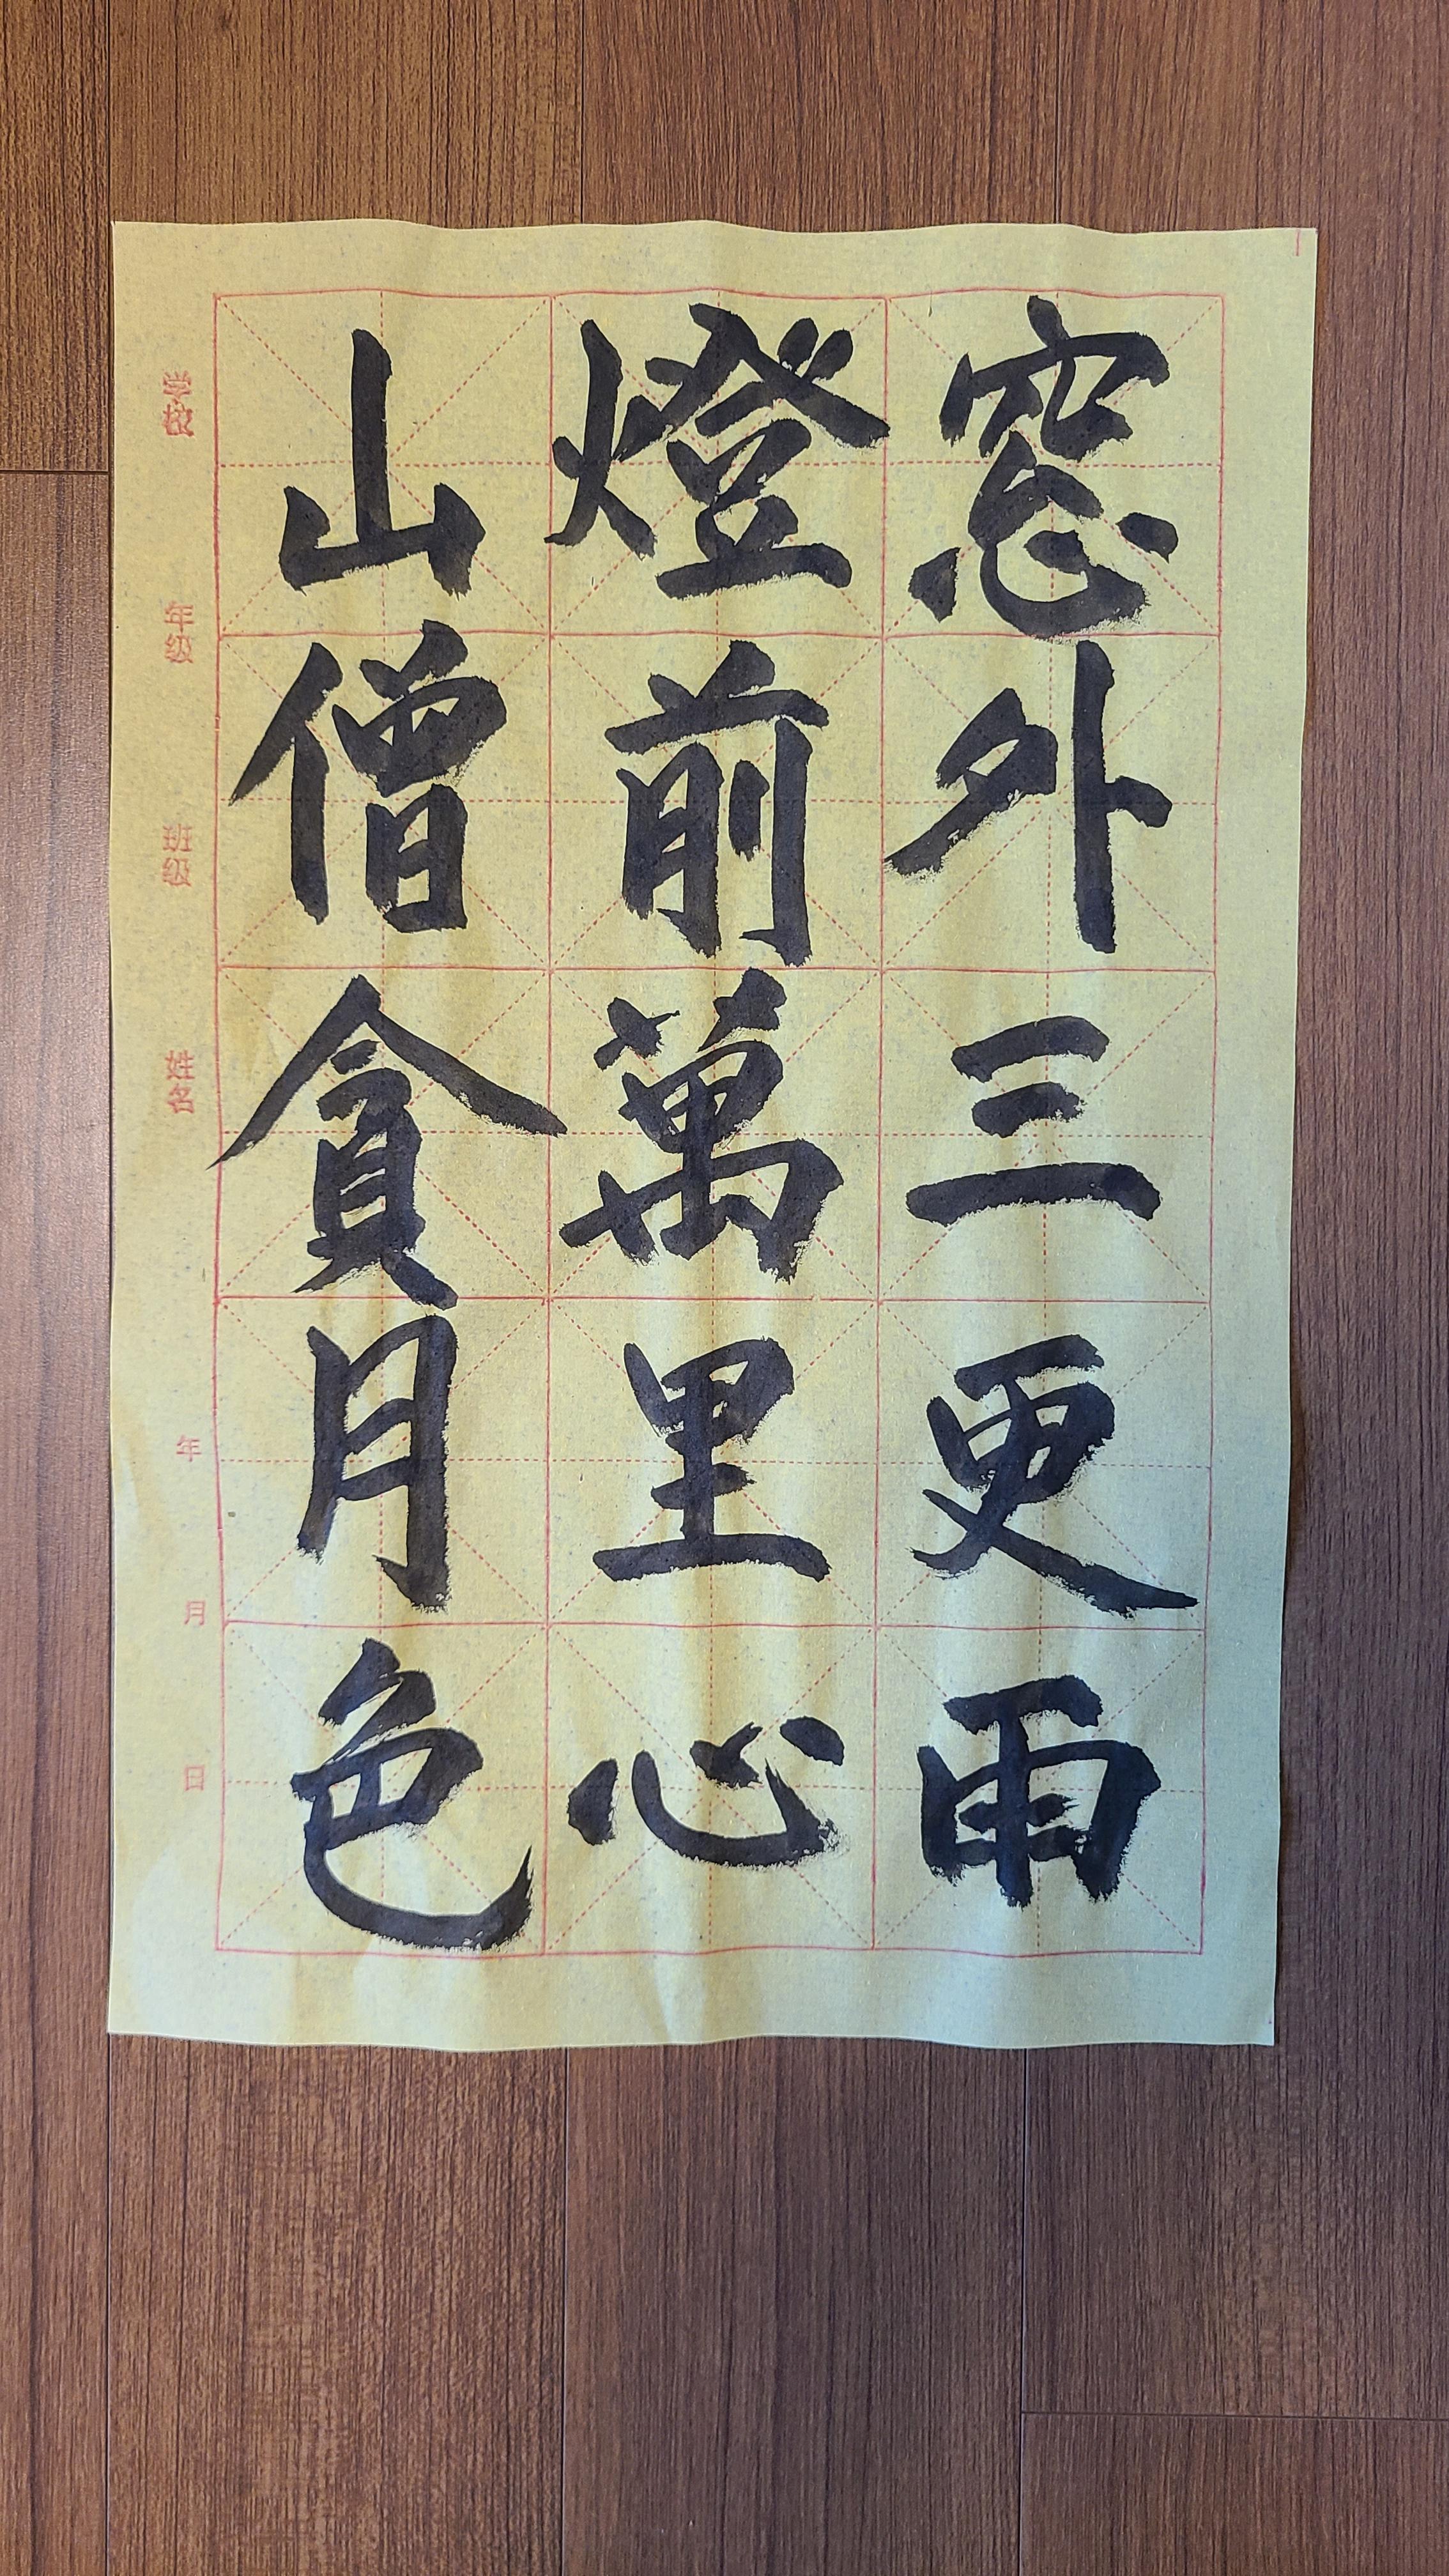 窓外三更雨
燈前萬里心
山僧貪月色
学校
年级
班级
姓名
年
月
日